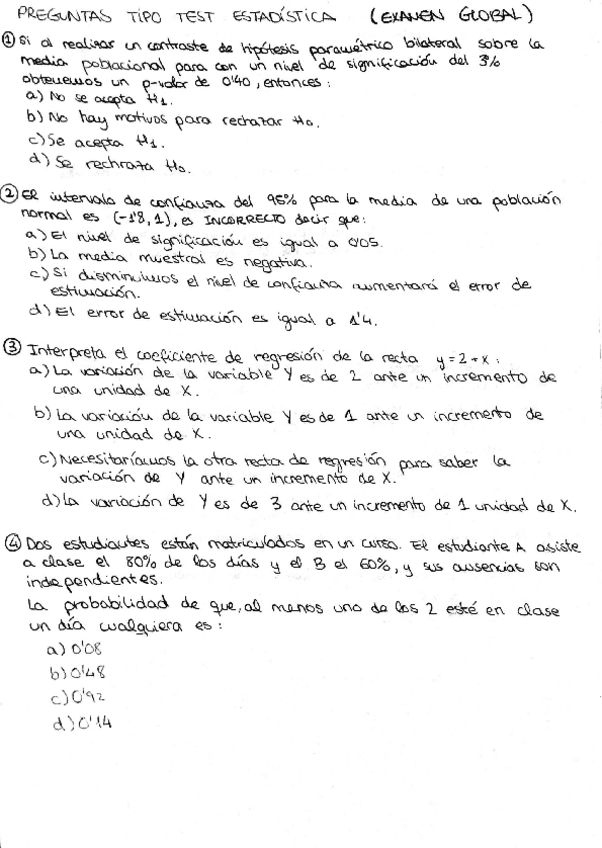 PREGUNTAS TIPO TEST ESTADÍSTICA (EXAMEN GLOBAL)
① Si al realizar un contraste de hipótesis paramétrico bilateral sobre la
media poblacional para con un nivel de significación del 3%
obtenemos un p-valor de 0'40, entonces:
a) No se acepta H1.
b) No hay motivos para rechazar H0.
c) Se acepta H1.
d) Se rechraza H0.
② El intervalo de confianza del 95% para la media de una población
normal es (-1'8, 1), es INCORRECTO decir que:
a) El nivel de significación es igual a 0'05.
b) La media muestral es negativa.
c) Si disminuimos el nivel de confianza aumentará el error de
estimación.
d) El error de estimación es igual a 1'4.
③ Interpreta el coeficiente de regresión de la recta y=2+x:
a) La variación de la variable Y es de 2 ante un incremento de
una unidad de X.
b) La variación de la variable Y es de 1 ante un incremento de
una unidad de X.
c) Necesitaríamos la otra recta de regresión para saber la
variación de Y ante un incremento de X.
d) La variación de Y es de 3 ante un incremento de 1 unidad de X.
④ Dos estudiantes están matriculados en un curso. El estudiante A asiste
a clase el 80% de los días y el B el 60%, y sus ausencias son
independientes.
La probabilidad de que, al menos uno de los 2 esté en clase
un día cualquiera es:
a) 0'08
b) 0'48
c) 0'92
d) 0'14